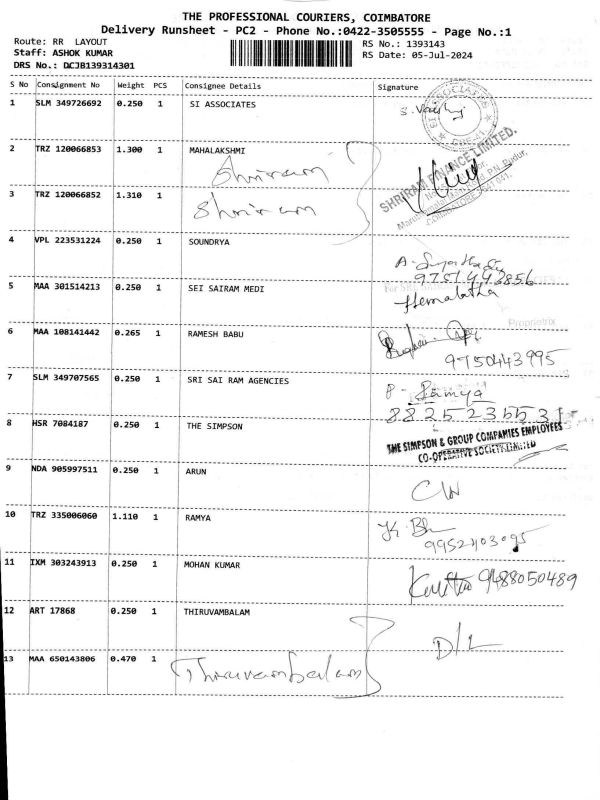 THE PROFESSIONAL COURIERS, COIMBATORE
Delivery Runsheet - PC2 - Phone No.:0422-3505555 - Page No.:1
Route: RR LAYOUT
RS No.: 1393143
Staff: ASHOK KUMAR
RS Date: 05-Jul-2024
DRS No.: DCJB139314301
S No Consignment No Weight PCS Consignee Details Signature
1 SLM 349726692 0.250 1 SI ASSOCIATES
2 TRZ 120066853 1.300 1 MAHALAKSHMI
Shriram
SHRIRAM FINANCE LIMITED.
3 TRZ 120066852 1.310 1
Shriram
4 VPL 223531224 0.250 1 SOUNDRYA
9751442856
5 MAA 301514213 0.250 1 SEI SAIRAM MEDI Hemalatha
Proprietrix
6 MAA 108141442 0.265 1 RAMESH BABU
9750443995
7 SLM 349707565 0.250 1 SRI SAI RAM AGENCIES P. Ramya
8825235531
8 HSR 7084187 0.250 1 THE SIMPSON
THE SIMPSON & GROUP COMPANIES EMPLOYEES
CO-OPERATIVE SOCIETY LIMITED
9 NDA 905997511 0.250 1 ARUN
10 TRZ 335006060 1.110 1 RAMYA
11 IXM 303243913 0.250 1 MOHAN KUMAR
9488050489
12 ART 17868 0.250 1 THIRUVAMBALAM
D/L
13 MAA 650143806 0.470 1 Thiruvambalam